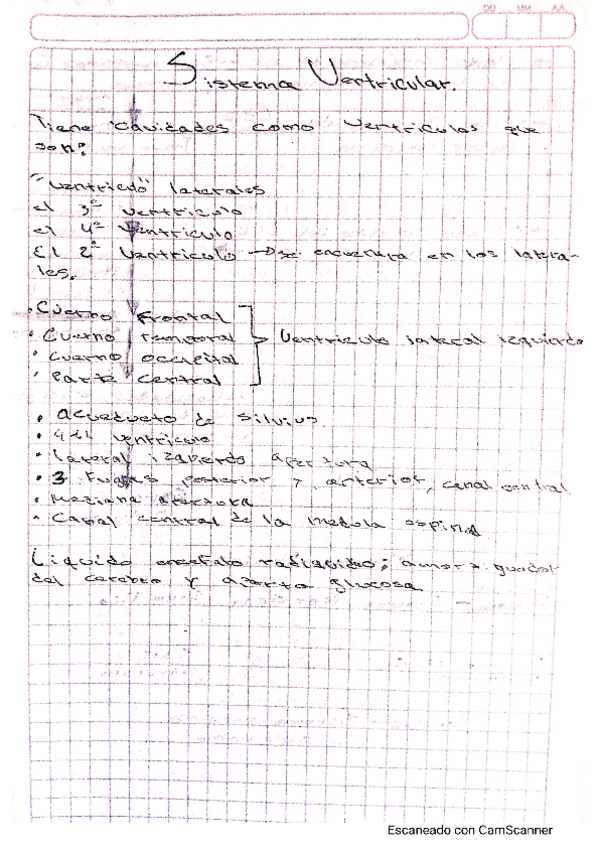 DD MM AA
Sistema Ventricular.
Tiene cavidades como ventriculos que
son:
"ventriculo" laterales
el 3º ventriculo
el 4º Ventriculo
El 2º Ventriculo → se encuentra en los latera-
les.
· Cuerno frontal
· Cuerno temporal } Ventriculo lateral izquierdo
· Cuerno occipital
· Parte central
• acueducto de silvius
• ventriculo
• lateral izquierdo apertura
• 3 posterior y anterior, canal central
• Mediana apertura
• Canal central de la medula espinal
Liquido encefalo raquideo;
del cerebro y aporta glucosa.
Escaneado con CamScanner